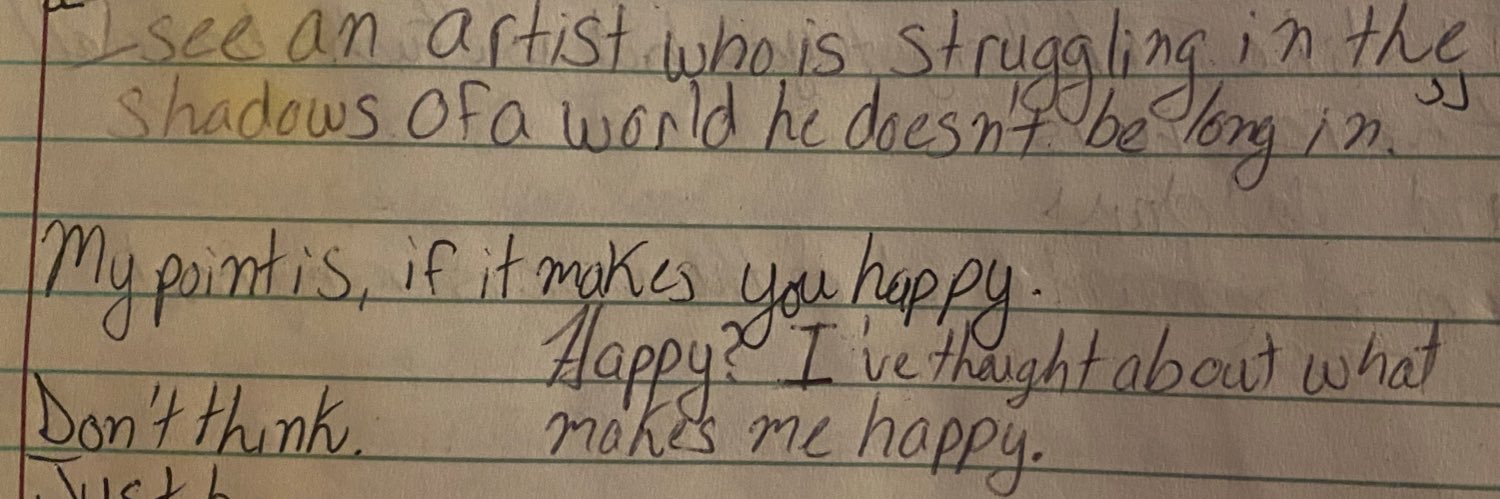 I see an artist who is struggling in the
shadows of a world he doesn't belong in."
My point is, if it makes you happy.
Happy? I've thought about what
Don't think. makes me happy.
Just